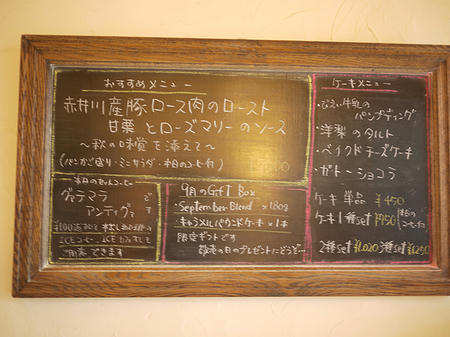 おすすめメニュー
赤井川産豚ロース肉のロースト
甘栗とローズマリーのソース
～秋の味覚を添えて～
(パンかご盛り・ミニサラダ・本日のコーヒー付)
本日のホットコーヒー
グァテマラ で
アンティグア す
ICEコーヒー、ICE
ご用意できます
9月のGift Box
・September Blend × 180g
・キャラメルパウンドケーキ × 1本
限定ギフトです
敬老の日のプレゼントにどうぞ…
ケーキメニュー
・びえい牛乳の
パンプディング
・洋梨のタルト
・ベイクドチーズケーキ
・ガトーショコラ
ケーキ単品 ¥450
ケーキ1種set ¥950 本日のコーヒー付
2種set ¥1,020 3種set ¥1,250